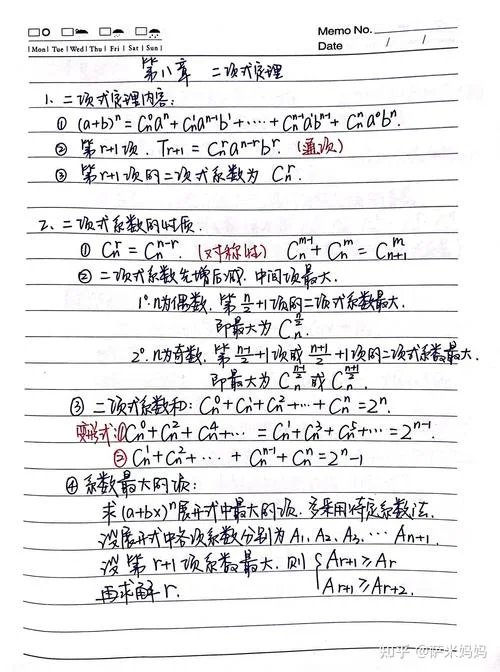 Memo No.
Mon Tue Wed Thu Fri Sat Sun
Date / /
第八章 二项式定理
1. 二项式定理内容:
① (a+b)ⁿ = Cₙ⁰aⁿ + Cₙ¹aⁿ⁻¹b¹ + ⋯ + Cₙⁿ⁻¹a¹bⁿ⁻¹ + Cₙⁿa⁰bⁿ.
② 第r+1项. Tᵣ₊₁ = Cₙʳaⁿ⁻ʳbʳ. (通项)
③ 第r+1项的二项式系数为 Cₙʳ.
2. 二项式系数的性质.
① Cₙʳ = Cₙⁿ⁻ʳ. (对称性) Cₙᵐ⁻¹ + Cₙᵐ = Cₙ₊₁ᵐ
② 二项式系数先增后减. 中间项最大.
1°. n为偶数. 第n/2+1项的二项式系数最大.
即最大为 Cₙ^(n/2)
2°. n为奇数. 第(n-1)/2+1项或(n+1)/2+1项的二项式系数最大.
即最大为 Cₙ^((n-1)/2) 或 Cₙ^((n+1)/2).
③ 二项式系数和: Cₙ⁰+Cₙ¹+Cₙ²+⋯+Cₙⁿ = 2ⁿ.
变形式: ① Cₙ⁰+Cₙ²+Cₙ⁴+⋯ = Cₙ¹+Cₙ³+Cₙ⁵+⋯ = 2ⁿ⁻¹.
② Cₙ¹+Cₙ²+⋯+Cₙⁿ⁻¹+Cₙⁿ = 2ⁿ-1
④ 系数最大的项:
求(a+bx)ⁿ展开式中最大的项. 多采用待定系数法.
设展开式中各项系数分别为A₁, A₂, A₃, ⋯ Aₙ₊₁.
设第r+1项系数最大. 则 { Aᵣ₊₁ ≥ Aᵣ
再求解r. Aᵣ₊₁ ≥ Aᵣ₊₂.
知乎 @萨米妈妈